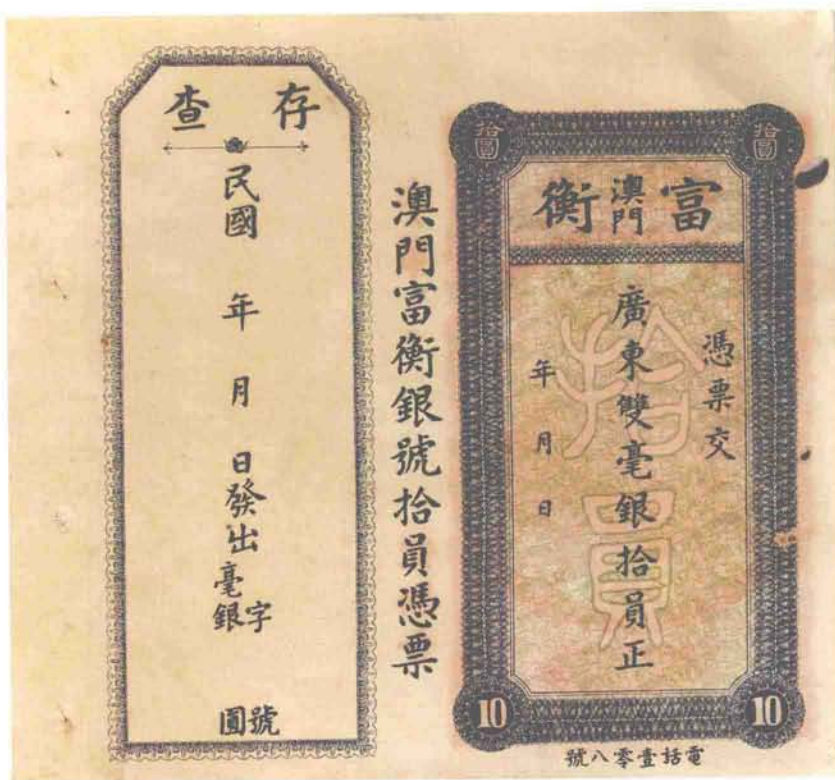 拾圓
拾圓
富澳門衡
憑票交
廣東雙毫銀拾員正
年月日
拾員
10
10
電話壹零八號
澳門富衡銀號拾員憑票
存查
民國 年 月 日發出 字 號
毫銀 圓